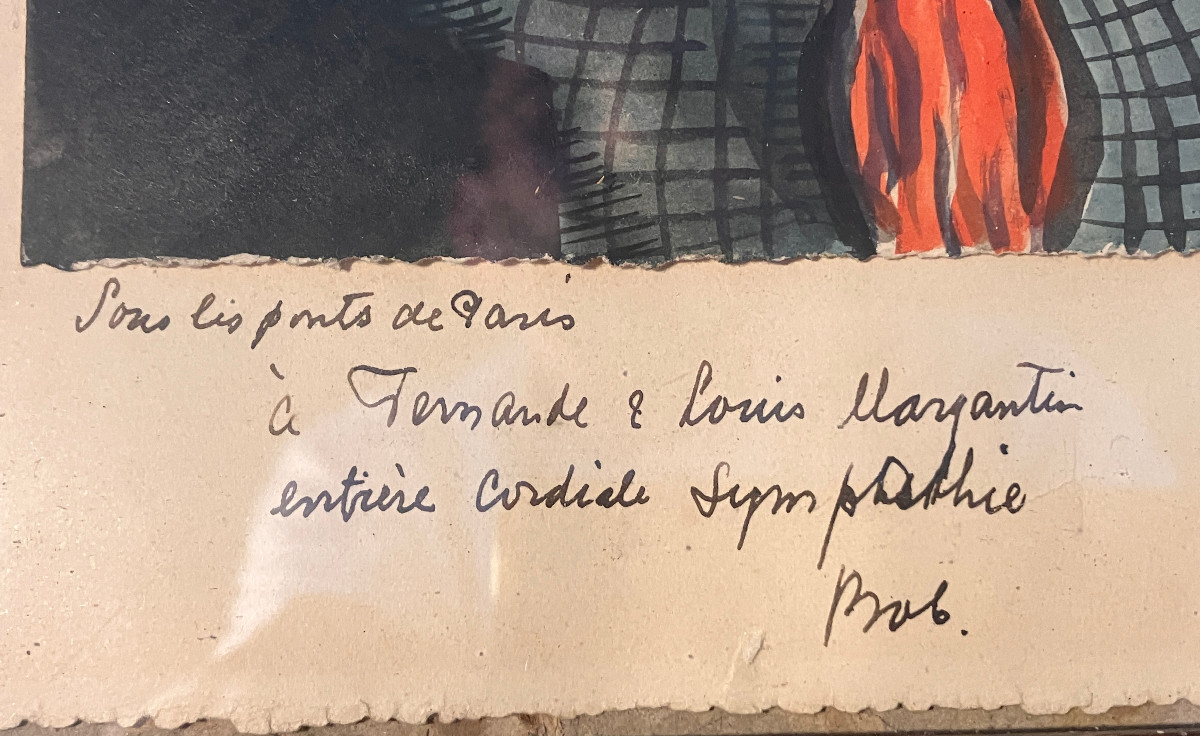 Sous les ponts de Paris
à Fernande & Louis Margantin
entière cordiale Sympathie
Bob.